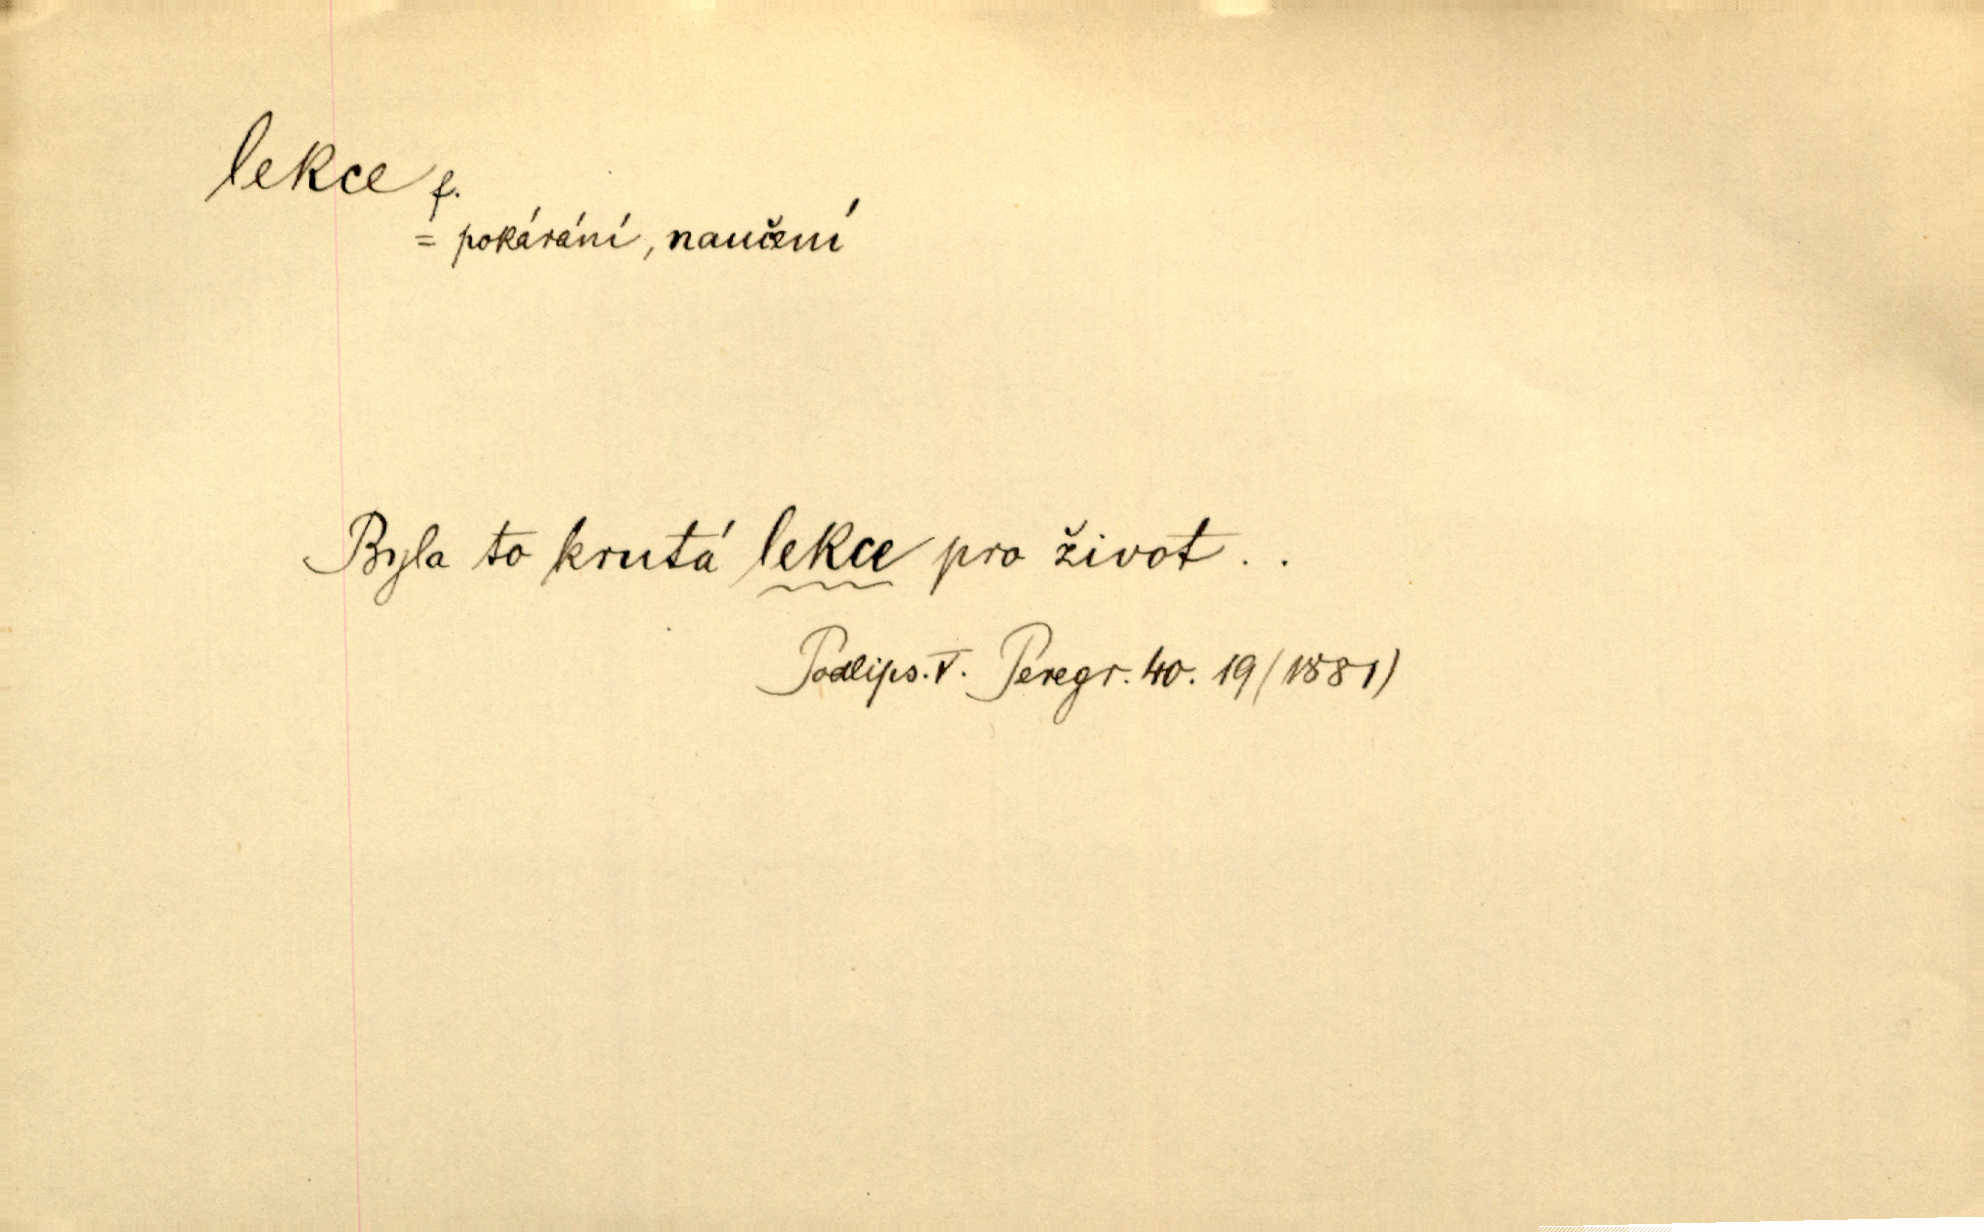 lekce f.
= pokárání, naučení
Byla to krutá lekce pro život . .
Podlips. V. Peregr. 40. 19 (1881)